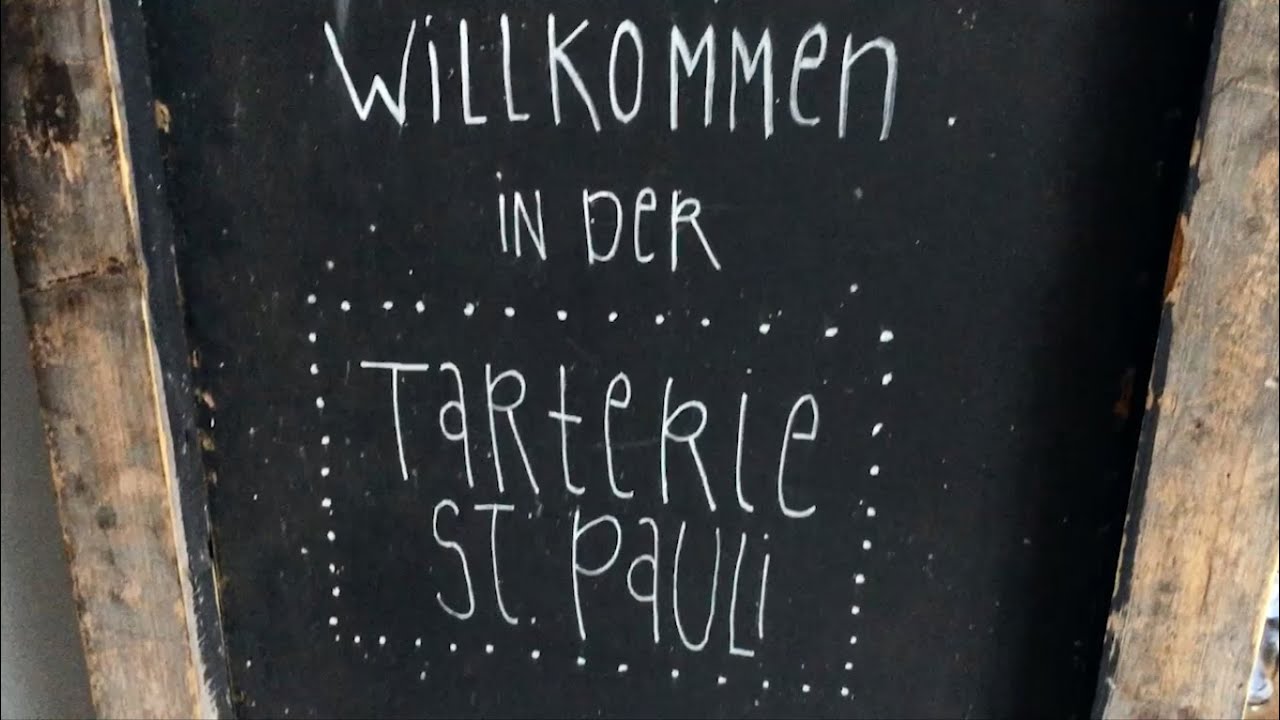 Willkommen
in der
Tarterie
St. Pauli